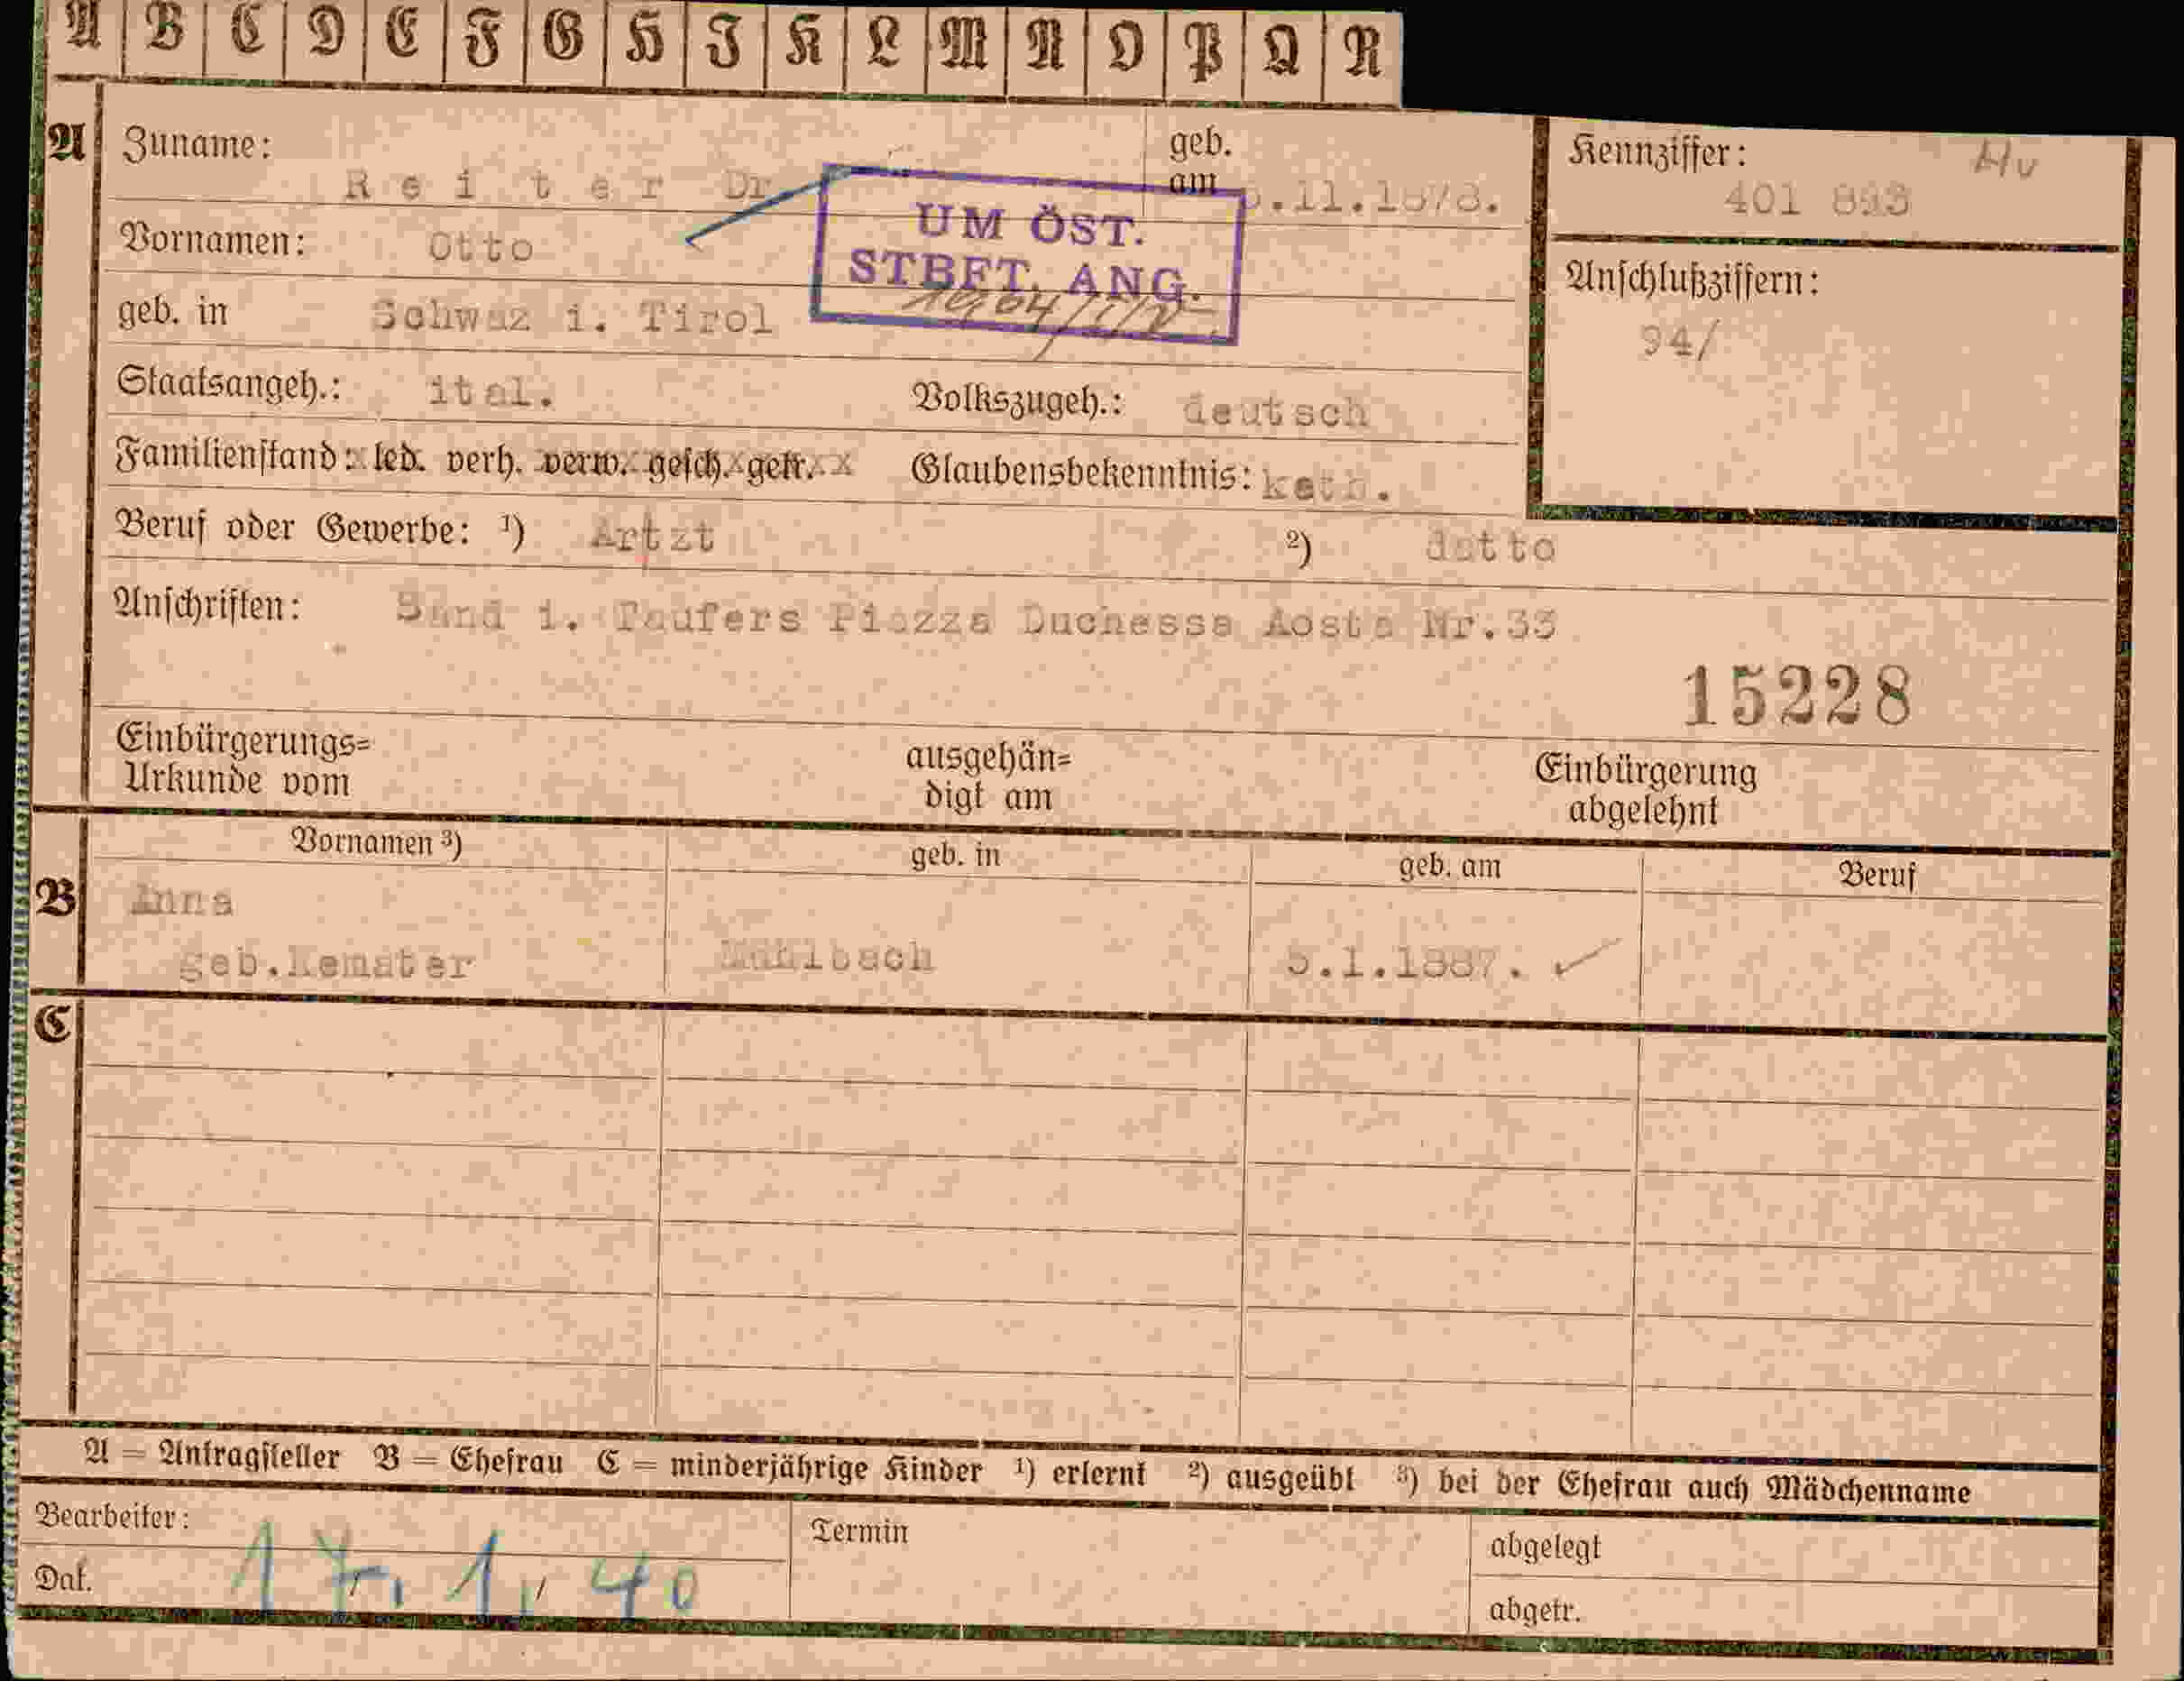 A B C D E F G H J K L M N O P Q R
A Zuname: Reiter Dr.
geb. am .11.1878.
Kennziffer: 401 893
Vornamen: Otto
UM ÖST.
STBFT. ANG.
Anschlußziffern:
94/
geb. in Schwaz i. Tirol
Staatsangeh.: ital. Volkszugeh.: deutsch
Familienstand: led. verh. verw. gesch. getr. Glaubensbekenntnis: kath.
Beruf oder Gewerbe: ¹) Artzt ²) detto
Anschriften: Sand i. Taufers Piazza Duchessa Aosta Nr.33
15228
Einbürgerungs=
Urkunde vom
ausgehän=
digt am
Einbürgerung
abgelehnt
Vornamen ³) geb. in geb. am Beruf
B Anna
geb. Mühlbach 5.1.1887.
C
A = Antragsteller B = Ehefrau C = minderjährige Kinder ¹) erlernt ²) ausgeübt ³) bei der Ehefrau auch Mädchenname
Bearbeiter:
Termin
abgelegt
Dat. 17. 1. 40
abgetr.